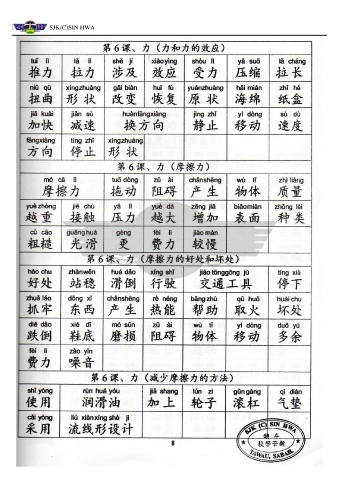 SJK(C)SIN HWA
第6课、力（力和力的效应）
tuī lì lā lì shè jí xiàoyìng shòu lì yā suō lā cháng
推力 拉力 涉及 效应 受力 压缩 拉长
niǔ qū xíngzhuàng gǎi biàn huī fù yuánzhuàng hǎi mián zhǐ hé
扭曲 形状 改变 恢复 原状 海绵 纸盒
jiā kuài jiǎn sù huànfāngxiàng jìng zhǐ yí dòng sù dù
加快 减速 换方向 静止 移动 速度
fāngxiàng tíng zhǐ xíngzhuàng
方向 停止 形状
第6课、力（摩擦力）
mó cā lì tuō dòng zǔ ài chǎnshēng wù tǐ zhì liàng
摩擦力 拖动 阻碍 产生 物体 质量
yuè zhòng jiē chù yā lì yuè dà zēng jiā biǎomiàn zhǒng lèi
越重 接触 压力 越大 增加 表面 种类
cū cāo guāng huá gèng fèi lì jiào màn
粗糙 光滑 更 费力 较慢
第6课、力（摩擦力的好处和坏处）
hǎo chu zhànwěn huá dǎo xíng shǐ jiāo tōnggōng jù tíng xià
好处 站稳 滑倒 行驶 交通工具 停下
zhuā láo dōng xī chǎnshēng rè néng bāng zhù qǔ huǒ huài chu
抓牢 东西 产生 热能 帮助 取火 坏处
diē dǎo xié dǐ mó sǔn zǔ ài wù tǐ yí dòng duō yú
跌倒 鞋底 磨损 阻碍 物体 移动 多余
fèi lì zào yīn
费力 噪音
第6课、力（减少摩擦力的方法）
shǐ yòng rùn huá yóu jiā shang lún zi gǔn gàng qì diàn
使用 润滑油 加上 轮子 滚杠 气垫
cǎi yòng liú xiànxíng shè jì
采用 流线形设计
8
SJK (C) SIN HWA
TAWAU, SABAH.